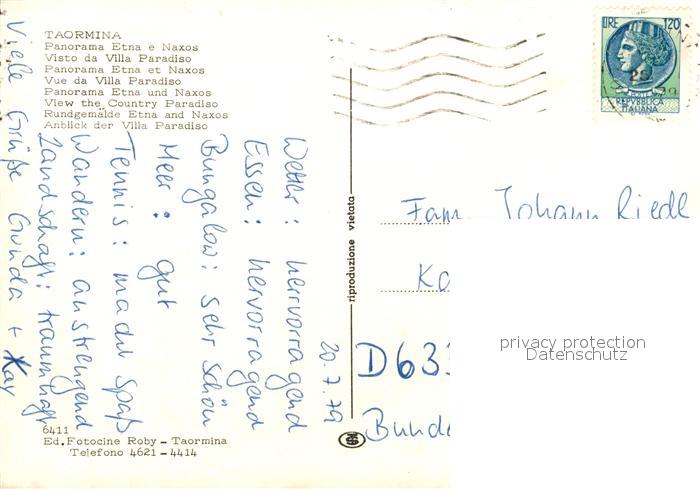 TAORMINA
Panorama Etna e Naxos
Visto da Villa Paradiso
Panorama Etna et Naxos
Vue da Villa Paradiso
Panorama Etna und Naxos
View the Country Paradiso
Rundgemälde Etna and Naxos
Anblick der Villa Paradiso
20.7.79
Wetter: hervorragend
Essen: hervorragend
Bungalow: sehr schön
Meer: gut
Tennis: macht Spaß
Wandern: anstrengend
Landschaft: traumhaft
Viele Grüße Gunda + Kay
6411
Ed. Fotocine Roby - Taormina
Telefono 4621 - 4414
riproduzione vietata
LIRE 120
REPVBBLICA
ITALIANA
Fam. Johann Riedl
Ko
D633
Bunde
privacy protection
Datenschutz